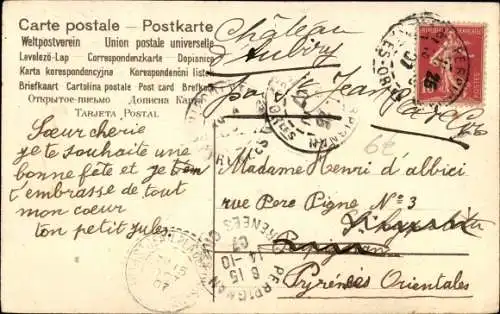 Carte postale - Postkarte
Weltpostverein Union postale universelle
Levelező-Lap - Correspondenzkarte - Dopisnice
Karta korespondencyjna - Korespondenční lístek
Briefkaart - Cartolina postale - Post card - Brefkort
Открытое-письмо Дописна Карта
TARJETA POSTAL
Château
d'Aubiry
par St Jean
Soeur cherie
je te souhaite une
bonne fête et je
t'embrasse de tout
mon coeur
ton petit Jules
6e
Madame Henri d'albici
rue Pere Pigne No 3
Perpignan
Pyrénées Orientales
PERPIGNAN
8 15
14-10
07
PYRENEES